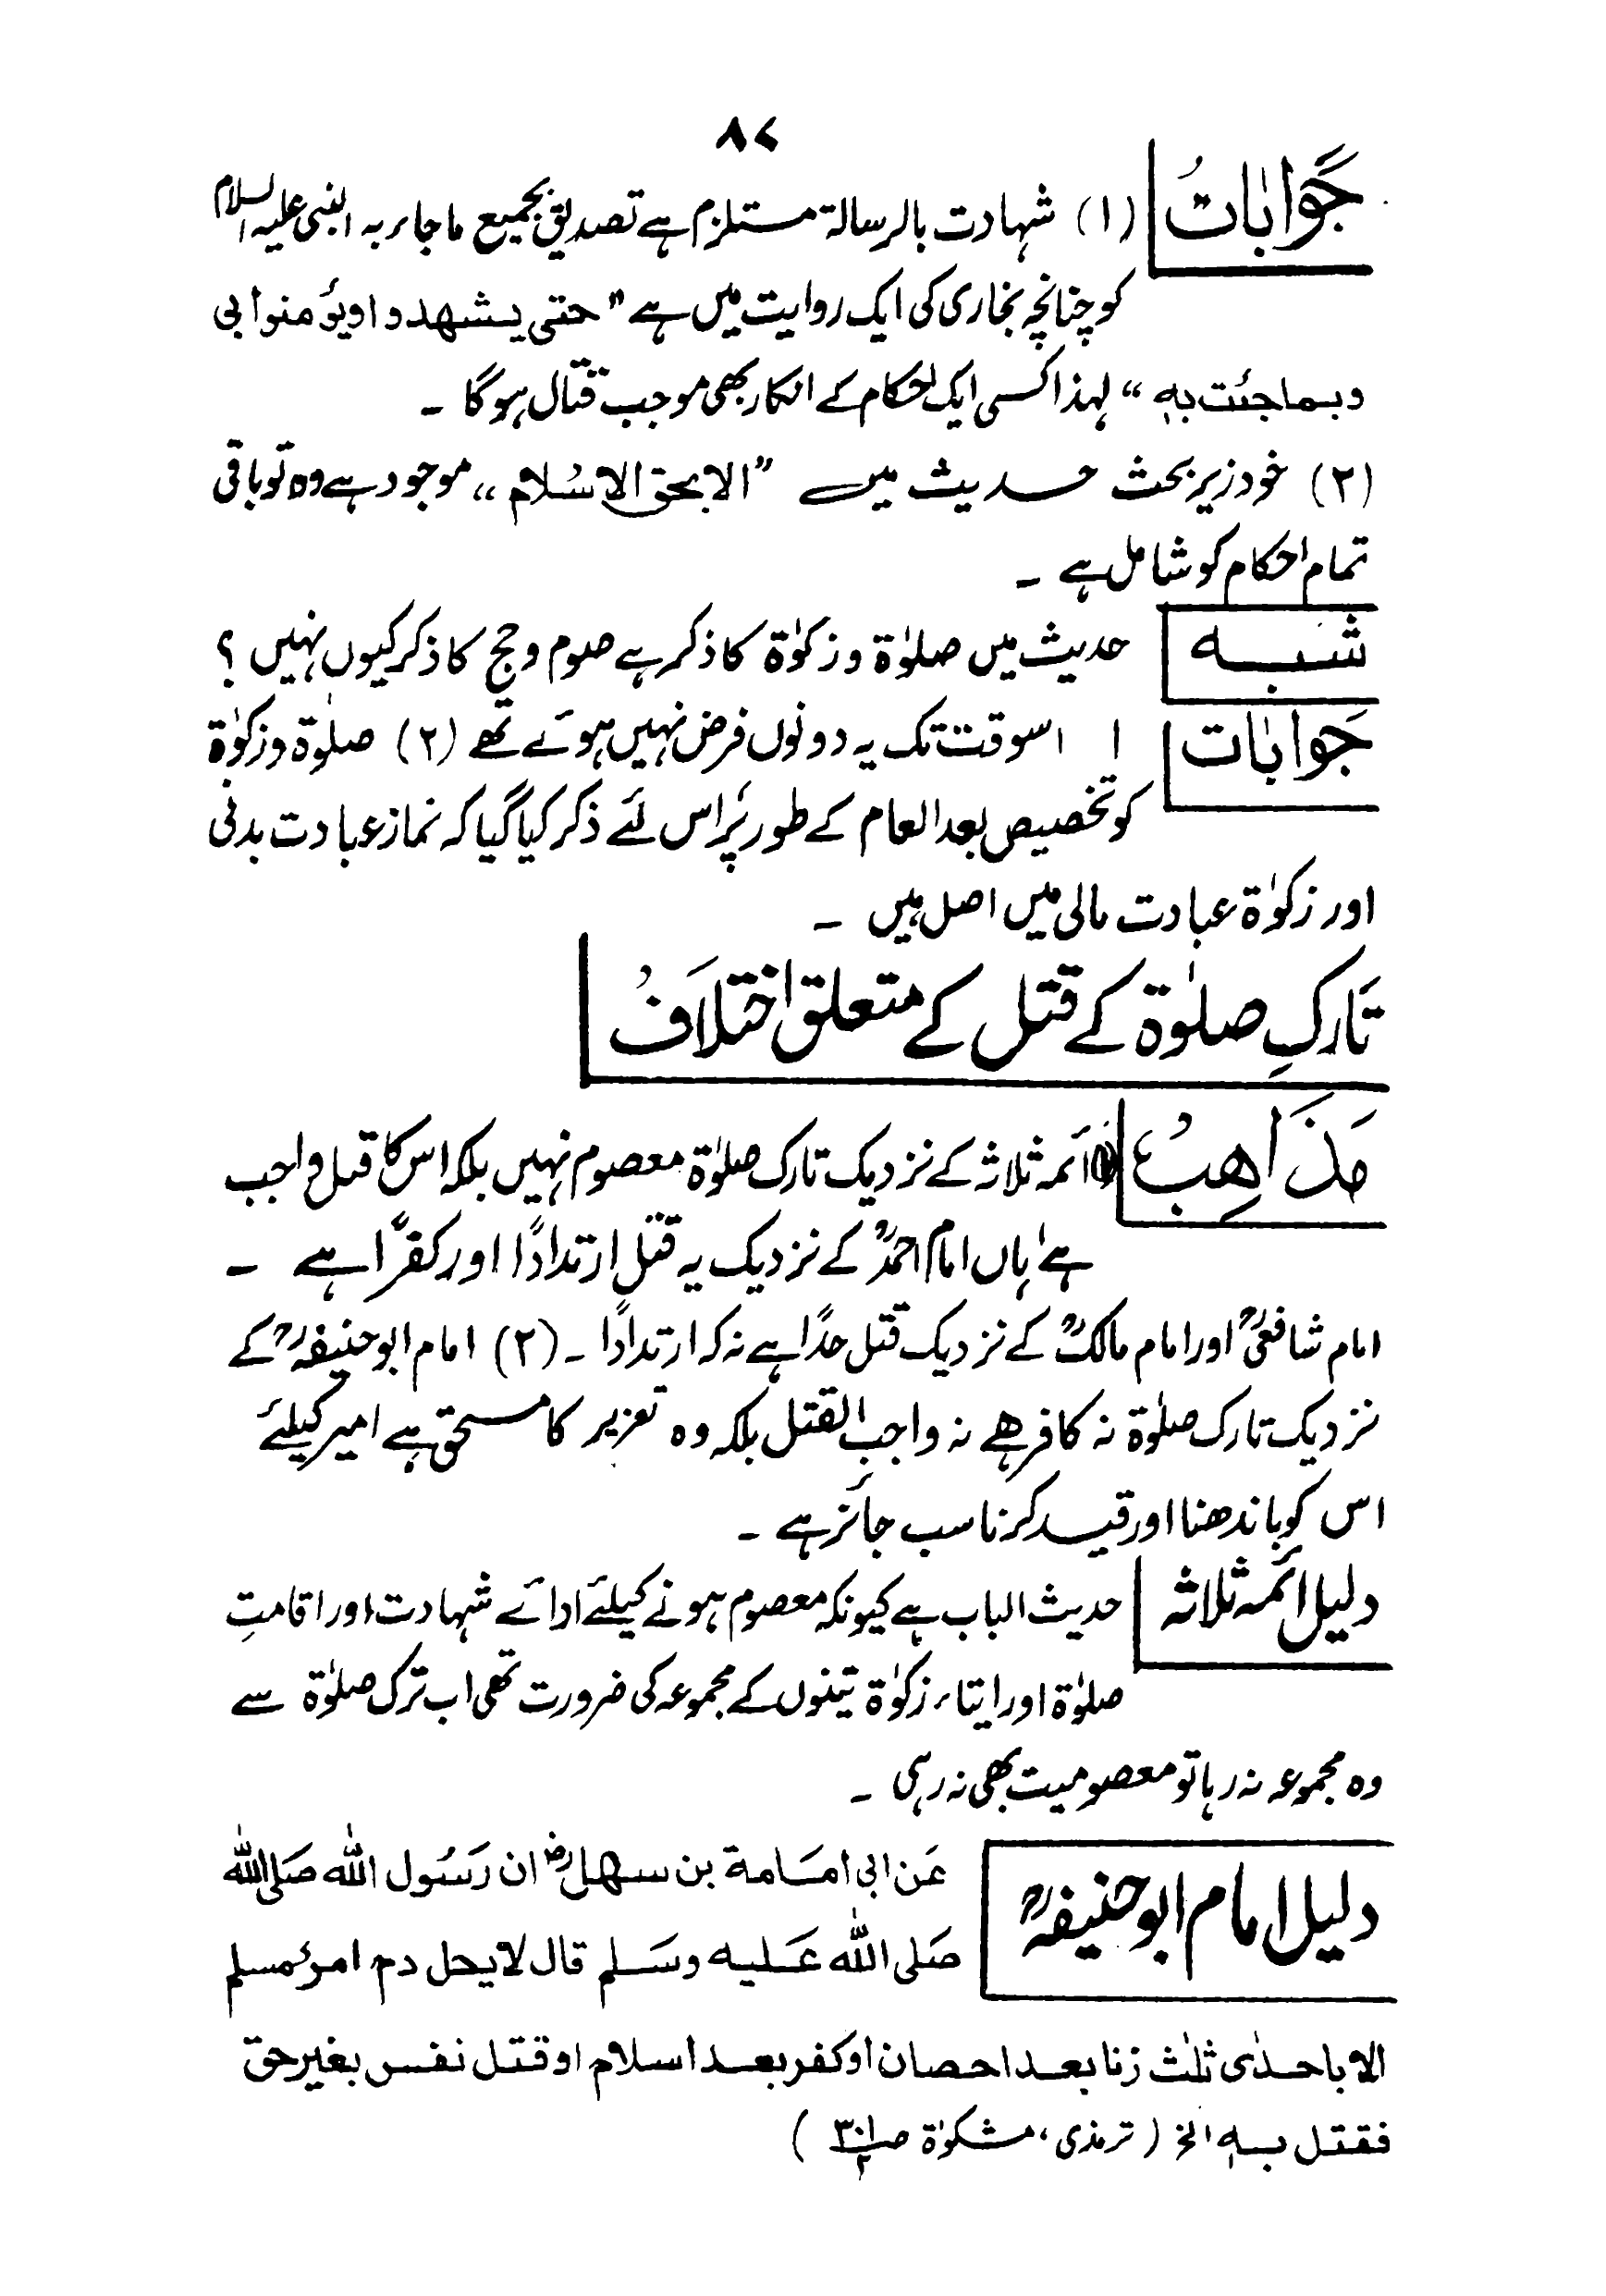 ۸۷
جوابات (۱) شہادت بالرسالۃ مستلزم ہے تصدیق بجمیع ماجاء بہ النبی علیہ السلام
کو چنانچہ بخاری کی ایک روایت میں ہے "حتی یشھدوا ویؤمنوا بی
وبما جئت بہٖ" لہذا کسی ایک احکام کے انکار بھی موجب قتال ہوگا ۔
(۲) خود زیر بحث حدیث میں "الا بحق الاسلام" موجود ہے وہ تو باقی
تمام احکام کو شامل ہے ۔
شبہ حدیث میں صلوٰۃ و زکوٰۃ کا ذکر ہے صوم و حج کا ذکر کیوں نہیں ؟
جوابات ۱ اسوقت تک یہ دونوں فرض نہیں ہوئے تھے (۲) صلوٰۃ و زکوٰۃ
کو تخصیص بعد العام کے طور پر اس لئے ذکر کیا گیا کہ نماز عبادت بدنی
اور زکوٰۃ عبادت مالی میں اصل ہیں ۔
تارکِ صلوٰۃ کے قتل کے متعلق اختلاف
مذاہب (۱) ائمہ ثلاثہ کے نزدیک تارک صلوٰۃ معصوم نہیں بلکہ اس کا قتل واجب
ہے ہاں امام احمدؒ کے نزدیک یہ قتل ارتدادًا اور کفرًا ہے ۔
امام شافعیؒ اور امام مالکؒ کے نزدیک قتل حدًا ہے نہ کہ ارتدادًا ۔ (۲) امام ابوحنیفہؒ کے
نزدیک تارک صلوٰۃ نہ کافر ہے نہ واجب القتل بلکہ وہ تعزیر کا مستحق ہے امیر کیلئے
اس کو باندھنا اور قید کرنا سب جائز ہے ۔
دلیل ائمہ ثلاثہ حدیث الباب ہے کیونکہ معصوم ہونے کیلئے ادائے شہادت اور اقامتِ
صلوٰۃ اور ایتاء زکوٰۃ تینوں کے مجموعہ کی ضرورت تھی اب ترک صلوٰۃ سے
وہ مجموعہ نہ رہا تو معصومیت بھی نہ رہی ۔
دلیل امام ابوحنیفہؒ عن ابی امامۃ بن سھلؓ ان رسول اللہ صلی اللہ
صلی اللہ علیہ وسلم قال لا یحل دم امرئ مسلم
الا باحدٰی ثلٰث زنا بعد احصان او کفر بعد اسلام او قتل نفس بغیر حق
فقتل بہٖ الخ (ترمذی، مشکوٰۃ ص۳۰۱/۲)